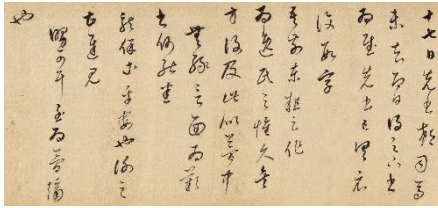 十七日先書郗司馬
未去即日得足下書
為慰先書以具示
復數字
吾前東粗足作
為逸民之懷久矣
方復及此似夢中
無緣言面為歎
書何能悉
龍保等平安也謝之
甚遲見
卿舅可耳至為簡隔
也